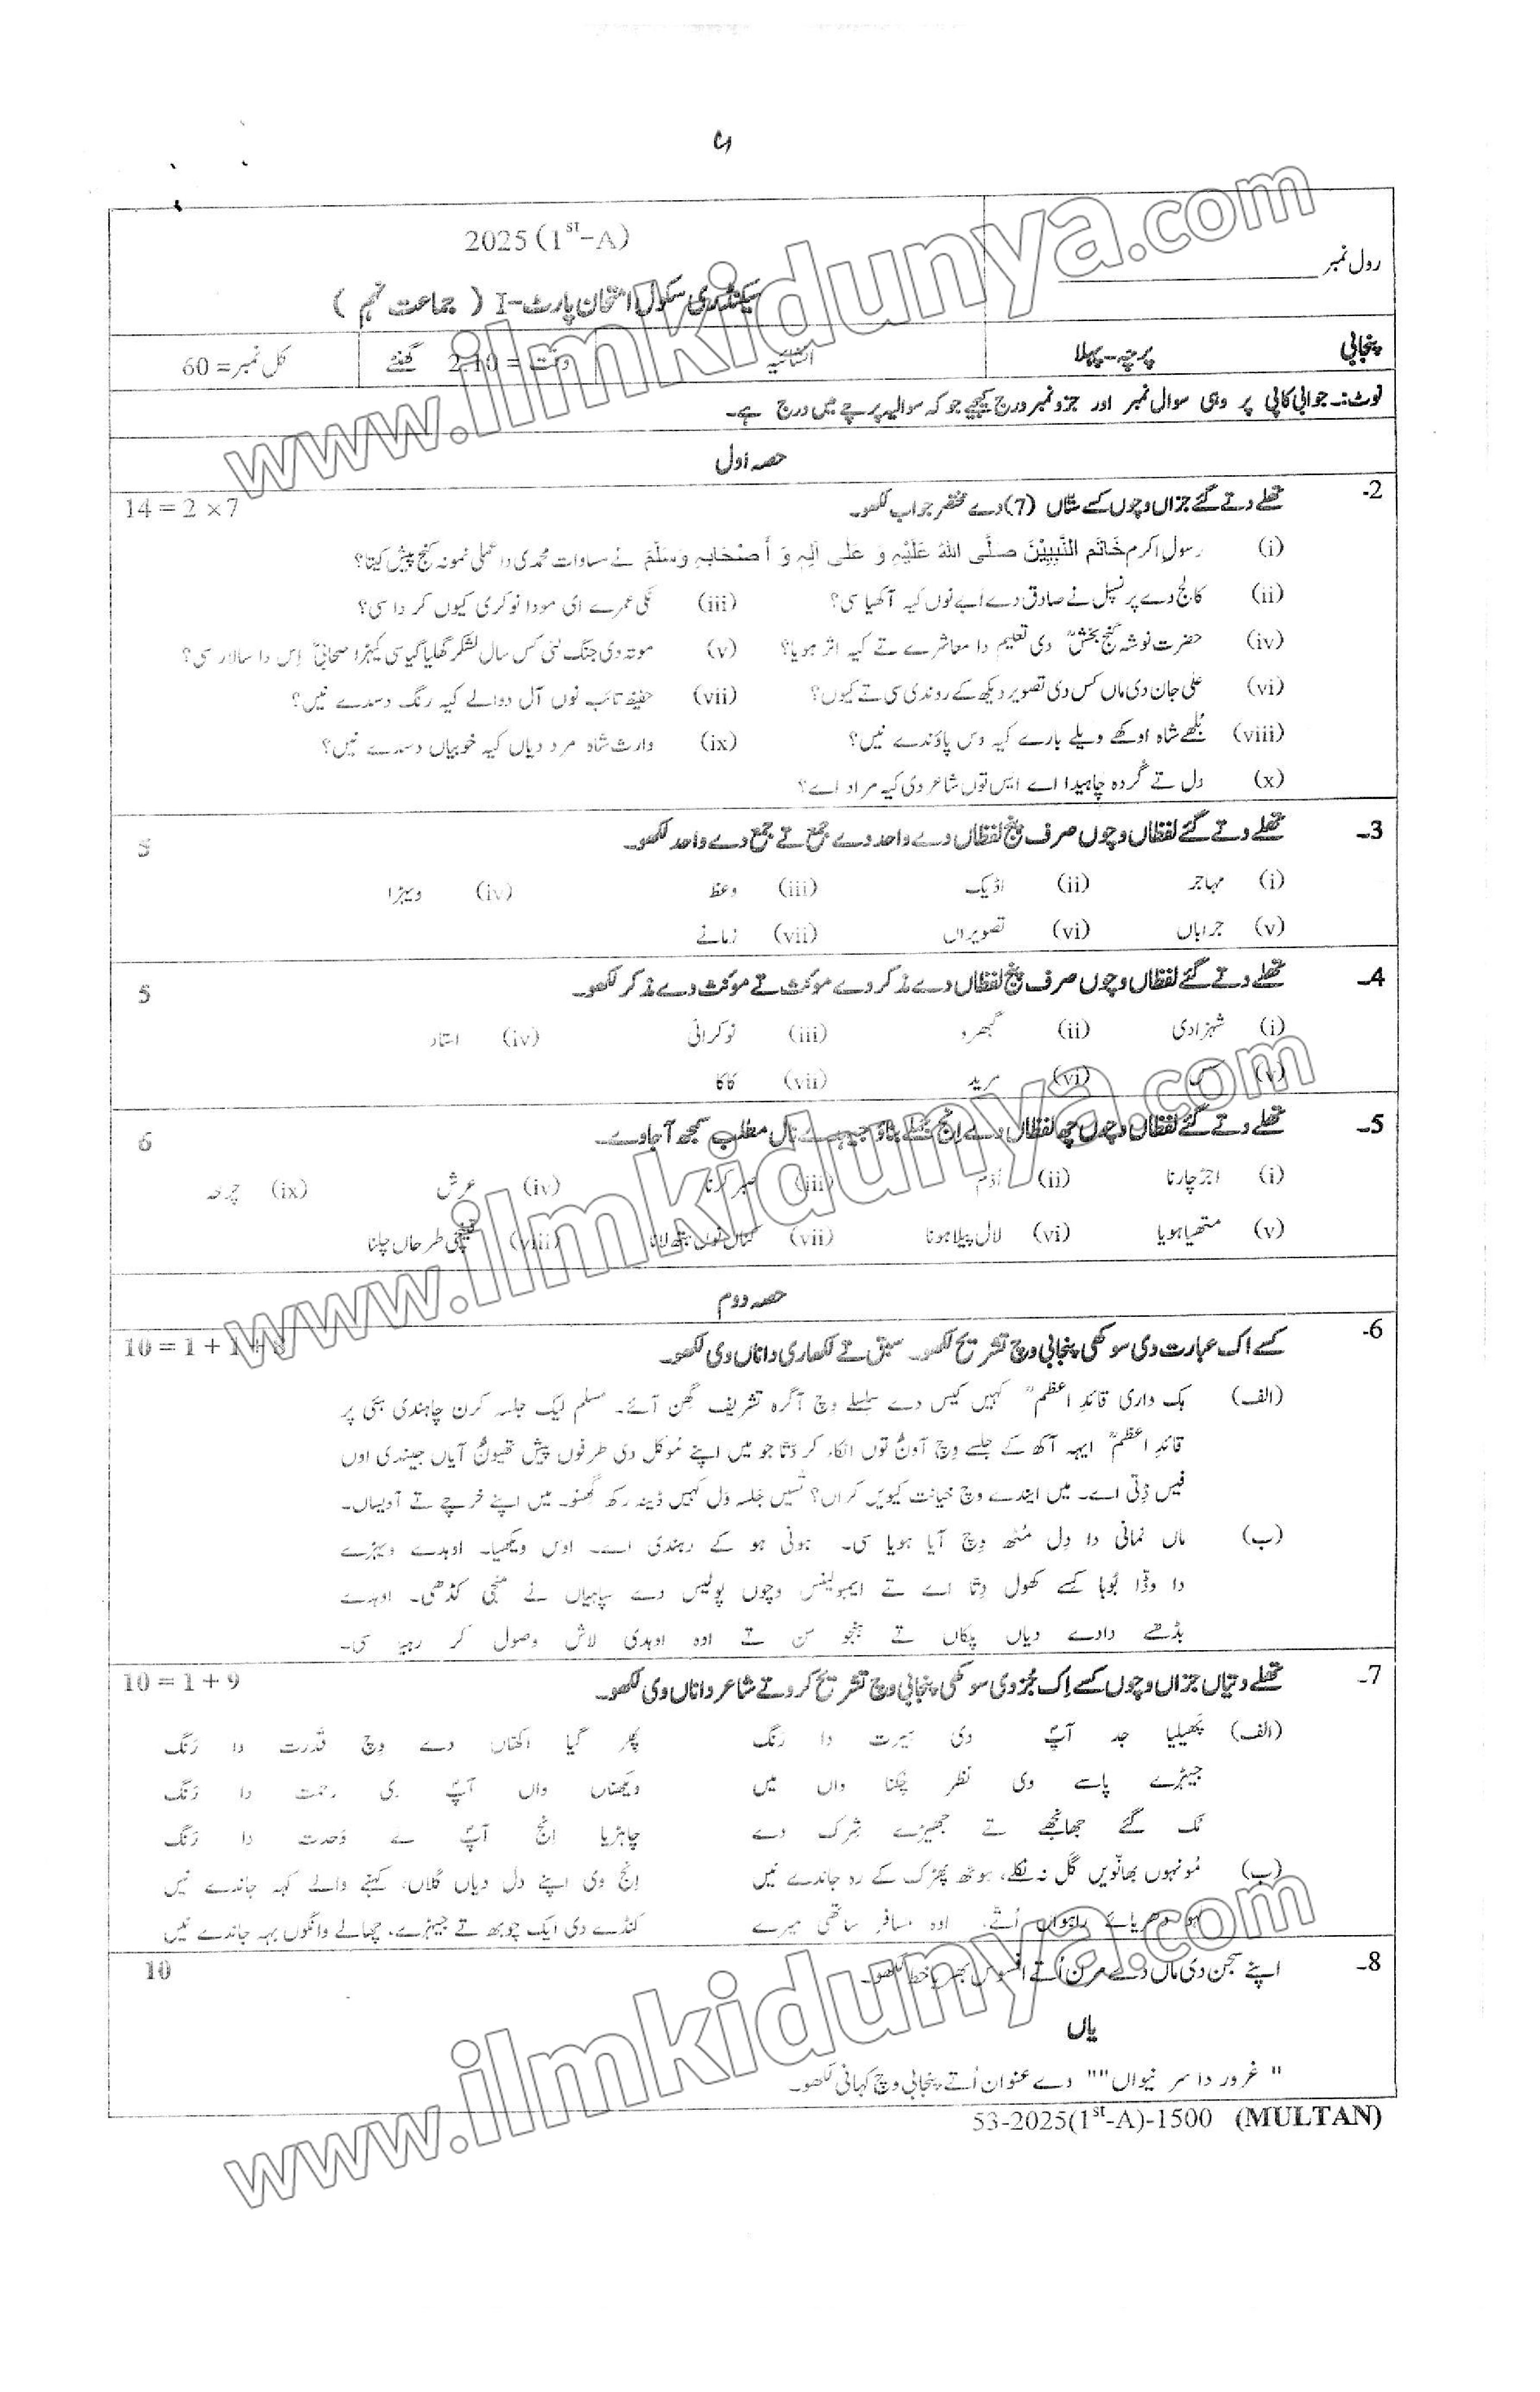 2025 (1st-A)
رول نمبر
سیکنڈری سکول امتحان پارٹ-I ( جماعت نہم )
پنجابی پرچہ-پہلا انشائیہ وقت = 2.10 گھنٹے کل نمبر= 60
نوٹ:۔ جوابی کاپی پر وہی سوال نمبر اور جزو نمبر درج کیجیے جو کہ سوالیہ پرچے میں درج ہے۔
حصہ اول
2- تھلے دتے گئے جزاں وچوں کسے ستاں (7) دے مختصر جواب لکھو۔ 14 = 2 × 7
(i) رسول اکرم خَاتَم النَّبِیّٖنَ صَلَّی اللہُ عَلَیْہِ وَ عَلٰی آلِہٖ وَ اَصْحَابِہٖ وَسَلَّمَ نے مساوات محمدی دا عملی نمونہ کنج پیش کیتا؟
(ii) کالج دے پرنسپل نے صادق دے ابے نوں کیہ آکھیا سی؟ (iii) نکی عمرے ای مودا نوکری کیوں کردا سی؟
(iv) حضرت نوشہ گنج بخشؒ دی تعلیم دا معاشرے تے کیہ اثر ہویا؟ (v) موتہ دی جنگ لئی کس سال لشکر گھلیا گیا سی کیہڑا صحابیؓ اِس دا سالار سی؟
(vi) علی جان دی ماں کس دی تصویر دیکھ کے روندی سی تے کیوں؟ (vii) حفیظ تائب نوں آل دوالے کیہ رنگ دسدے نیں؟
(viii) بُلھے شاہ اوکھے ویلے بارے کیہ دس پاؤندے نیں؟ (ix) وارث شاہ مرد دیاں کیہ خوبیاں دسدے نیں؟
(x) دل تے گُردہ چاہیدا اے ایس توں شاعر دی کیہ مراد اے؟
3- تھلے دتے گئے لفظاں وچوں صرف پنج لفظاں دے واحد دے جمع تے جمع دے واحد لکھو۔ 5
(i) مہاجر (ii) اڈیک (iii) وعظ (iv) ویہڑا
(v) جراباں (vi) تصویراں (vii) زمانے
4- تھلے دتے گئے لفظاں وچوں صرف پنج لفظاں دے مذکر دے مونث تے مونث دے مذکر لکھو۔ 5
(i) شہزادی (ii) گبھرو (iii) نوکرانی (iv) استاد
(v) (vi) مرید (vii) کاکا
5- تھلے دتے گئے لفظاں وچوں چھ لفظاں دے اِنج جملے بناؤ جیہدے نال مطلب سمجھ آجاوے۔ 6
(i) اجڑ چارنا (ii) (iii) صبر کرنا (iv) عرش (ix) چرخہ
(v) متھیا ہویا (vi) لال پیلا ہونا (vii) کناں نوں ہتھ لانا (viii) قینچی طرحاں چلنا
حصہ دوم
6- کسے اک عبارت دی سوکھی پنجابی وچ تشریح لکھو۔ سبق تے لکھاری دا ناں وی لکھو۔ 10 = 1 + 1 + 8
(الف) ہک داری قائدِ اعظمؒ کہیں کیس دے سِلسلے وِچ آگرہ تشریف گھِن آئے۔ مسلم لیگ جلسہ کرن چاہندی ہئی پر
قائدِ اعظمؒ ایہہ آکھ کے جلسے وِچ آونٛ توں انکار کر دِتا جو میں اپنے مُوکل دی طرفوں پیش تھیونٛ آیاں جیندی اوں
فیس دِتی اے۔ میں ایندے وچ خیانت کیویں کراں؟ تُسیں جلسہ وَل کہیں ڈینہہ رکھ گھِنو۔ میں اپنے خرچے تے آویساں۔
(ب) ماں نمانی دا دِل مُٹھ وچ آیا ہویا سی۔ ہونی ہو کے رہندی اے۔ اوس ویکھیا۔ اوہدے ویہڑے
دا وڈّا بُوہا کسے کھول دِتا اے تے ایمبولینس وچوں پولیس دے سپاہیاں نے منجی کڈھی۔ اوہدے
بڈھے دادے دیاں پلکاں تے ہنجو سن تے اوہ اوہدی لاش وصول کر رہیا سی۔
7- تھلے دتیاں جزاں وچوں کسے اِک جُز دی سوکھی پنجابی وچ تشریح کرو تے شاعر دا ناں وی لکھو۔ 10 = 1 + 9
(الف) پھیلیا جد آپؐ دی سیرت دا رنگ پِھر گیا اکھّاں دے وِچ قُدرت دا رَنگ
جیہڑے پاسے وی نظر چُکنا واں میں ویکھناں واں آپؐ دی رحمت دا رَنگ
مُک گئے جھانجھے تے جھیڑے شِرک دے چاہڑیا اِنج آپؐ نے وَحدت دا رَنگ
(ب) مُونہوں بھانویں گل نہ نکلے، ہوٹھ پھڑک کے رہ جاندے نیں اِنج وی اپنے دل دیاں گلاں، کہنے والے کہہ جاندے نیں
اوہ مسافر ساتھی میرے کنڈے دی ایک چوبھ تے جیہڑے، چھالے وانگوں بہہ جاندے نیں
8- اپنے سجن دی ماں دے مرن اُتے افسوس بھریا خط لکھو۔ 10
یاں
" غرور دا سر نیواں"" دے عنوان اُتے پنجابی وچ کہانی لکھو۔
53-2025(1st-A)-1500 (MULTAN)
www.ilmkidunya.com
www.ilmkidunya.com
www.ilmkidunya.com